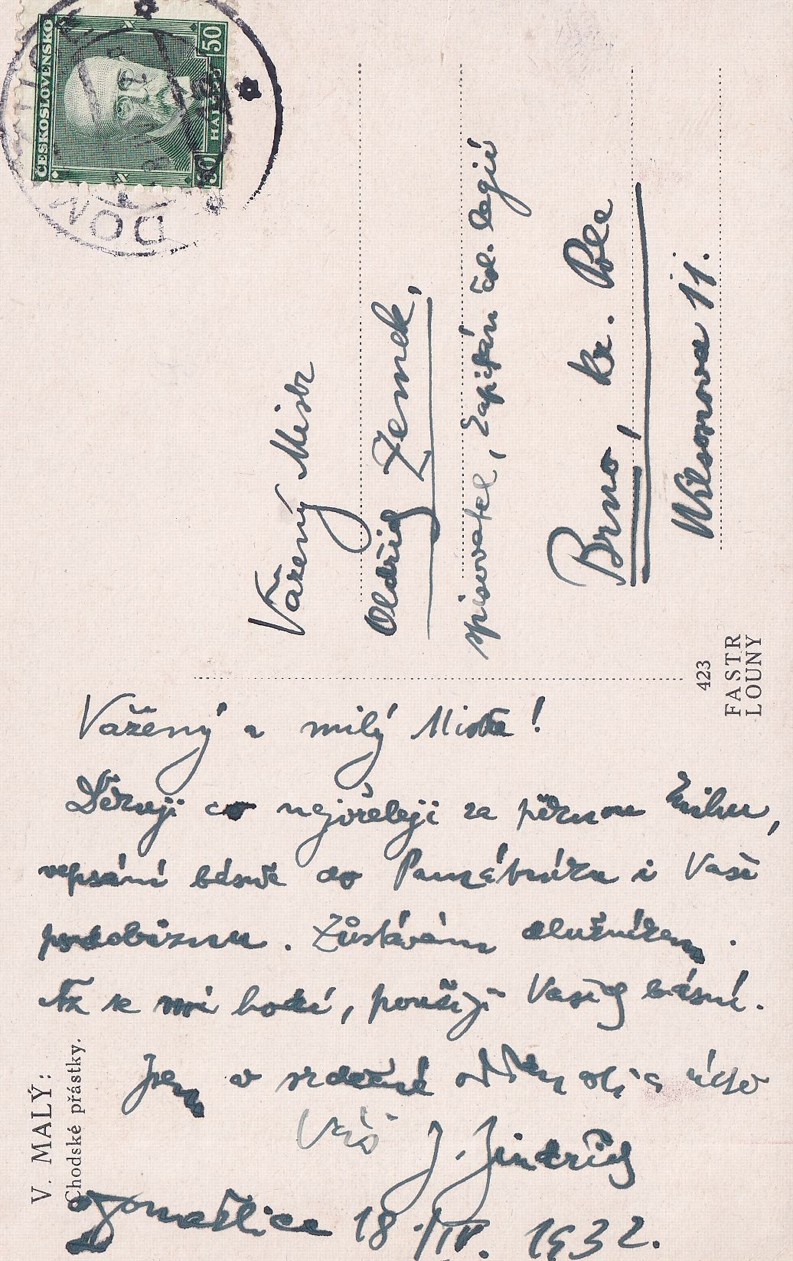 ČESKOSLOVENSKO
50 HALÉŘŮ 50
DOM
Vážený Mistr
Oldřich Zemek,
spisovatel, kapitán čsl. legií
Brno, kr. Pole
Wilsonova 11.
423
FASTR
LOUNY
V. MALÝ:
Chodské přástky.
Vážený a milý Mistře!
Děkuji co nejvřeleji za pěknou knihu,
vepsání básně do Památníku i Vaši
podobiznu. Zůstávám dlužníkem.
Až se mi hodí, použiji Vašich básní.
Jsem v srdečné oddanosti a úctě
Váš J. Jindřich
Domažlice 18./IV. 1932.